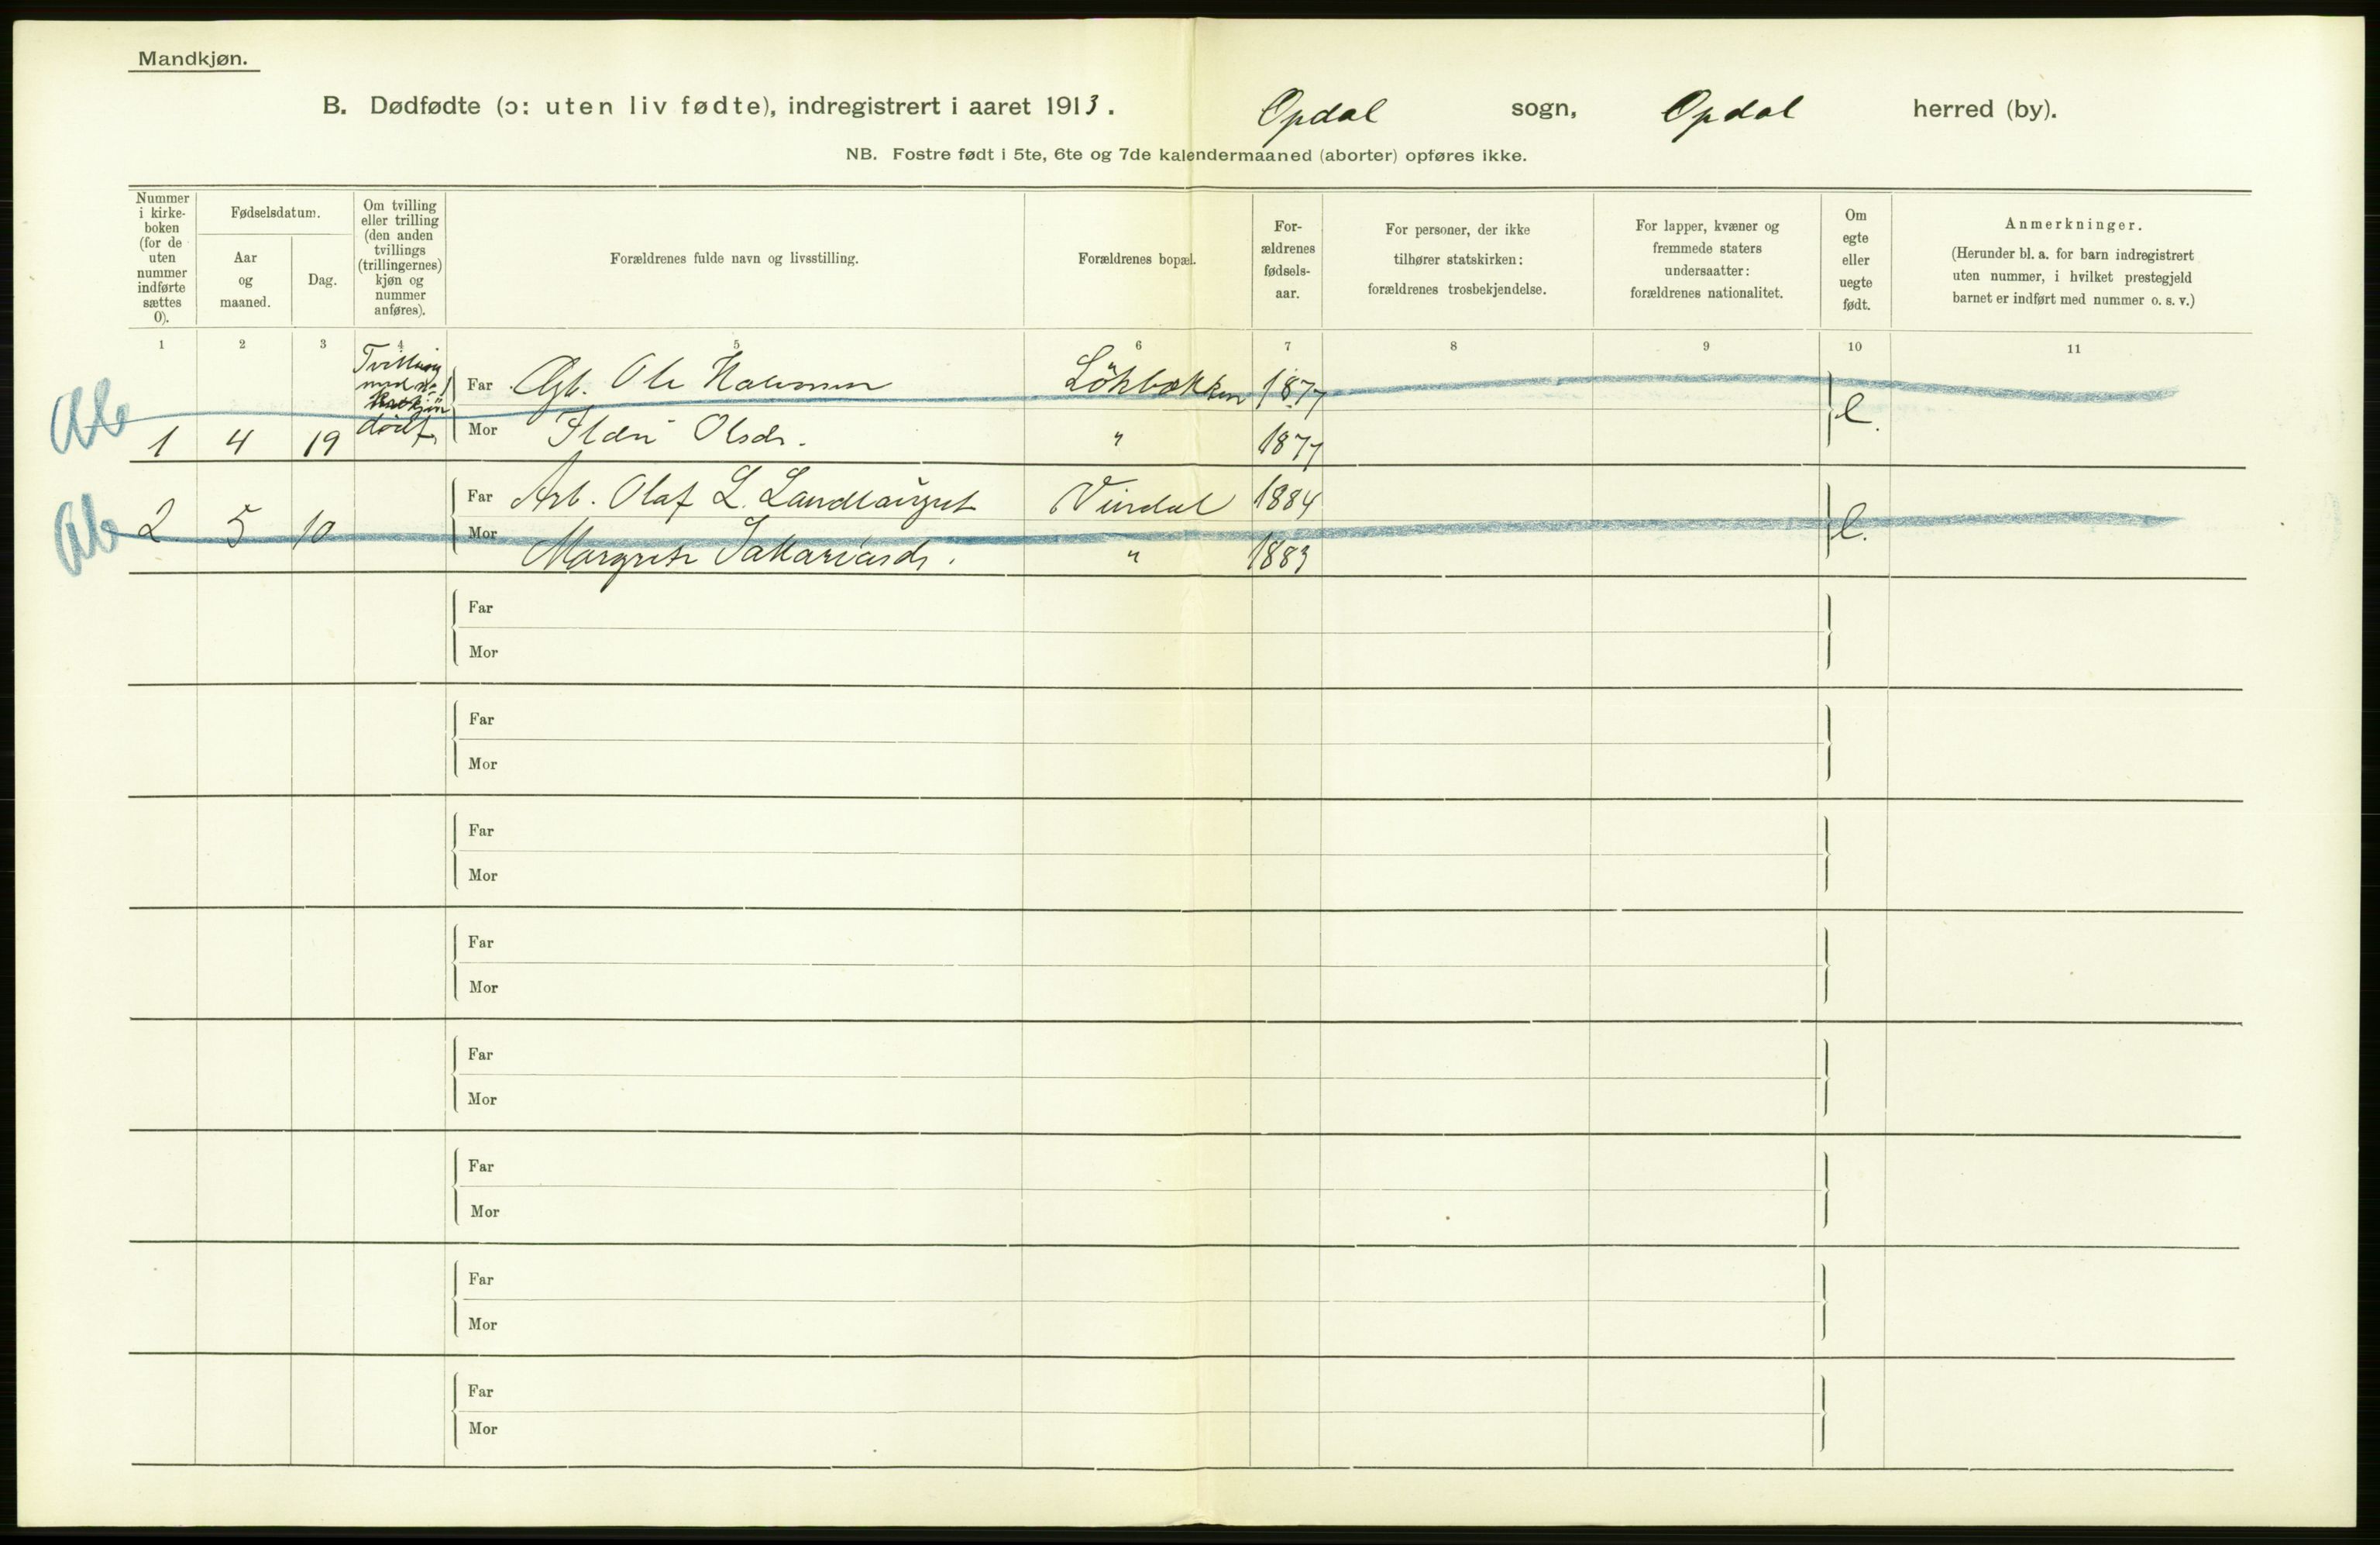 Mandkjøn.
B. Dødfødte (ɔ: uten liv fødte), indregistrert i aaret 1913. Opdal sogn, Opdal herred (by).
NB. Fostre født i 5te, 6te og 7de kalendermaaned (aborter) opføres ikke.
Nummer
i kirke-
boken
(for de
uten
nummer
indførte
sættes
0).
Fødselsdatum.
Aar
og
maaned.
Dag.
Om tvilling
eller trilling
(den anden
tvillings
(trillingernes)
kjøn og
nummer
anføres).
Forældrenes fulde navn og livsstilling.
Forældrenes bopæl.
For-
ældrenes
fødsels-
aar.
For personer, der ikke
tilhører statskirken:
forældrenes trosbekjendelse.
For lapper, kvæner og
fremmede staters
undersaatter:
forældrenes nationalitet.
Om
egte
eller
uegte
født.
Anmerkninger.
(Herunder bl. a. for barn indregistrert
uten nummer, i hvilket prestegjeld
barnet er indført med nummer o. s. v.)
1 2 3 4 5 6 7 8 9 10 11
Tvilling
med
Far Ole Løkbækken 1877
1 4 19 Mor Olsdr. " 1877
Far Arb. Olaf L. Vindal 1884
2 5 10 Mor Margrete " 1883
Far
Mor
Far
Mor
Far
Mor
Far
Mor
Far
Mor
Far
Mor
Far
Mor
Far
Mor